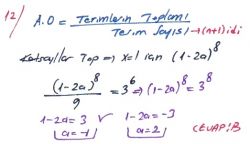 12/ A.O = Terimlerin Toplamı / Terim Sayısı → (n+1) idi
Katsayılar Top → x=1 için (1-2a)^8
(1-2a)^8 / 9 = 3^6 ⇒ (1-2a)^8 = 3^8
1-2a=3 ✓ 1-2a=-3
a=-1 a=2
CEVAP: B